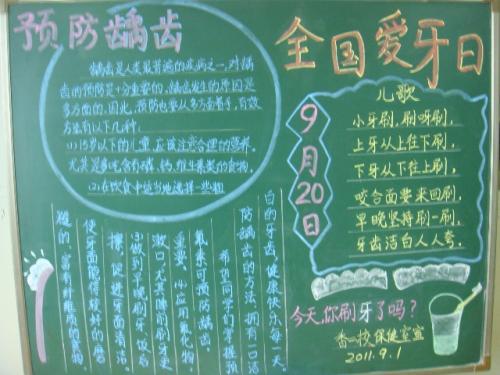 预防龋齿
龋齿是人类最普遍的疾病之一,对龋
齿的预防是十分重要的,龋齿发生的原因是
多方面的,因此,预防也要从多方面着手,有效
方法有以下几种:
(1)15岁以下的儿童,应该注意合理的营养。
尤其是多吃含有磷、钙、维生素类的食物。
(2)在饮食中适当地选择一些粗
糙的、富有纤维质的食物,
使牙面能得较好的磨
擦,促进牙面清洁。
(3)做到早晚刷牙,饭后
漱口,尤其睡前刷牙更
重要。(4)应用氟化物,
氟素可预防龋齿。
希望同学们掌握预
防龋齿的方法,拥有一口洁
白的牙齿,健康快乐每一天。
全国爱牙日
9月20日
儿歌
小牙刷,刷呀刷,
上牙从上往下刷,
下牙从下往上刷,
咬合面要来回刷,
早晚坚持刷一刷,
牙齿洁白人人夸。
今天,你刷牙了吗?
香一校保健室宣
2011.9.1